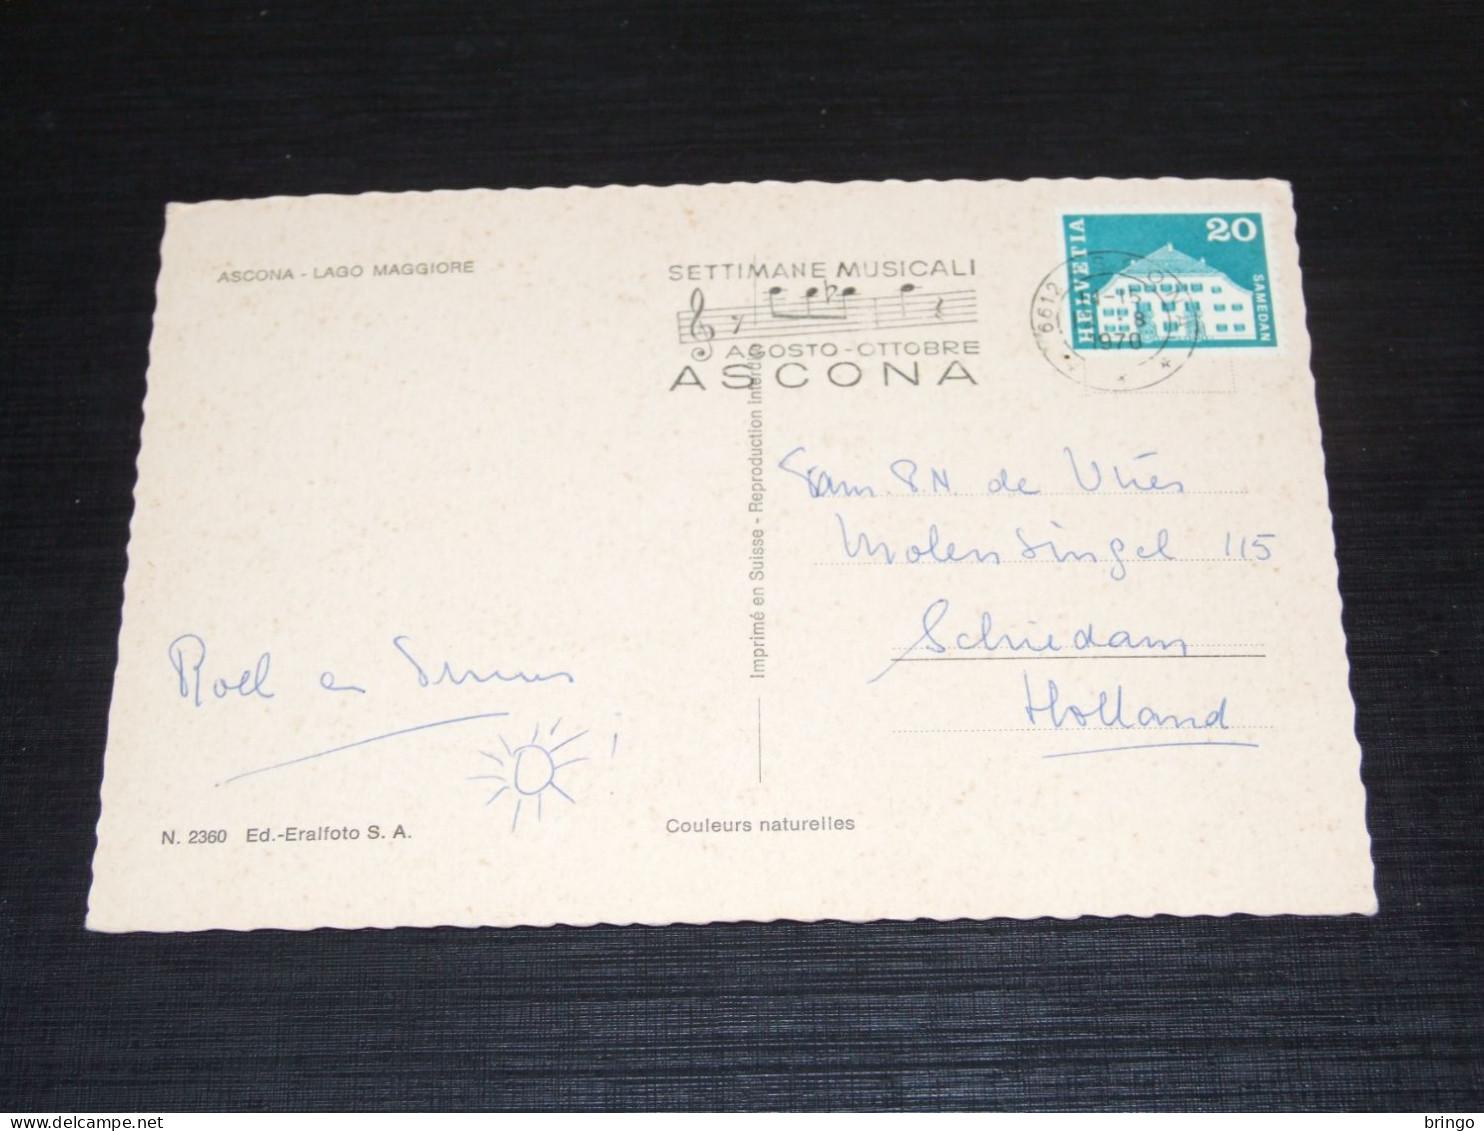 ASCONA - LAGO MAGGIORE
SETTIMANE MUSICALI
AGOSTO - OTTOBRE
ASCONA
6612
-15
8
1970
HELVETIA
20
SAMEDAN
Fam. P.N. de Vries
Molensingel 115
Schiedam
Holland
Imprimé en Suisse - Reproduction interdite
Roel en
N. 2360 Ed.-Eralfoto S. A.
Couleurs naturelles
bringo